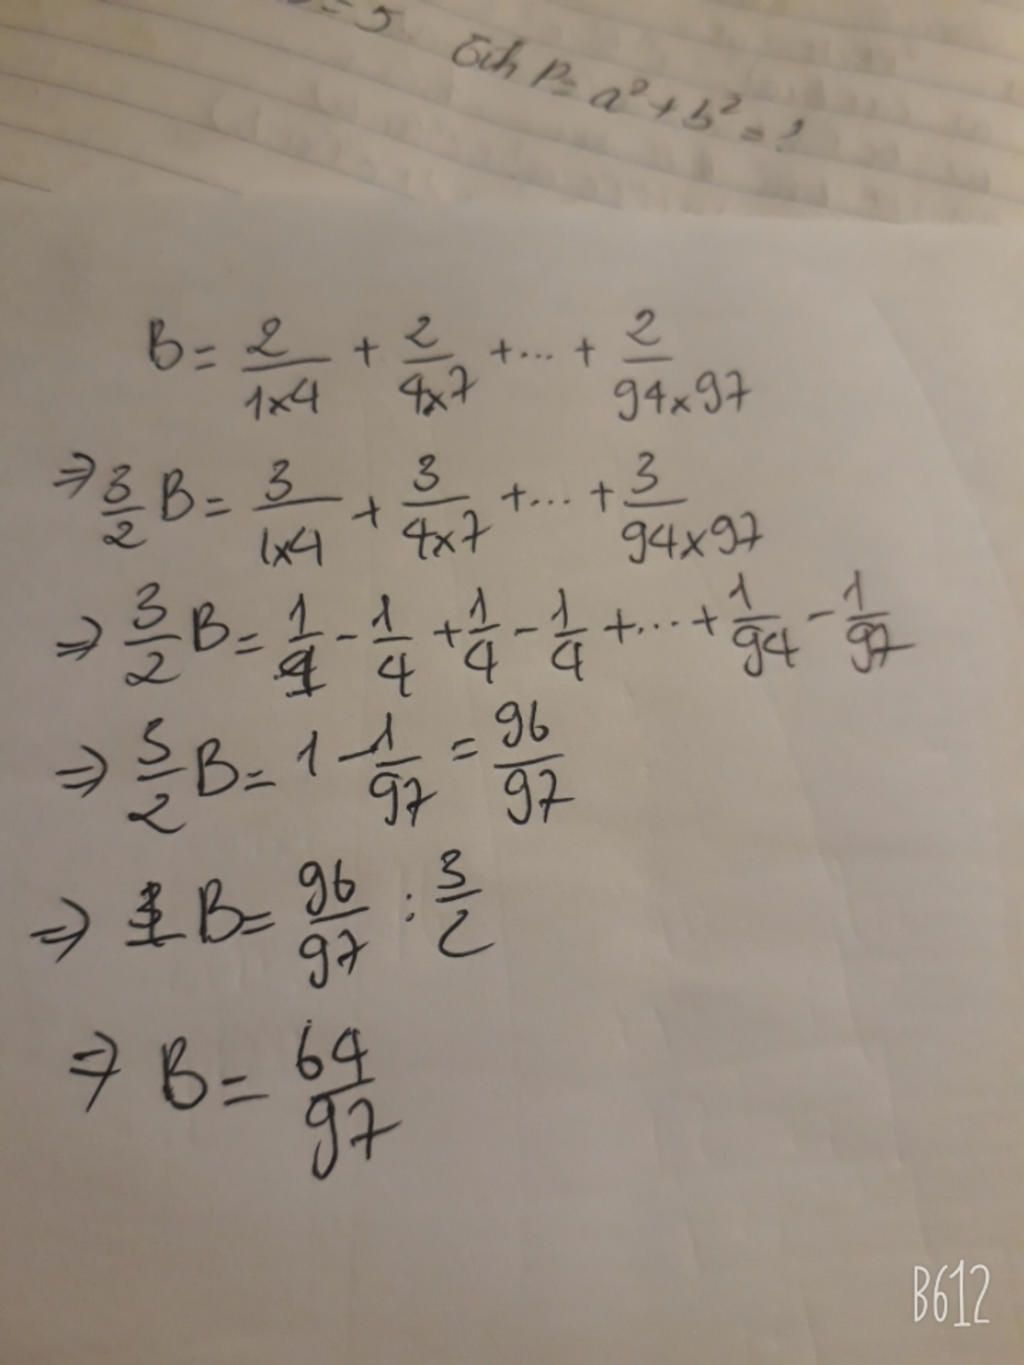 = 5 Tính P = a² + b² = ?
B = 2/(1x4) + 2/(4x7) + ... + 2/(94x97)
⇒ 3/2 B = 3/(1x4) + 3/(4x7) + ... + 3/(94x97)
⇒ 3/2 B = 1/1 - 1/4 + 1/4 - 1/4 + ... + 1/94 - 1/97
⇒ 3/2 B = 1 - 1/97 = 96/97
⇒ B = 96/97 : 3/2
⇒ B = 64/97
B612